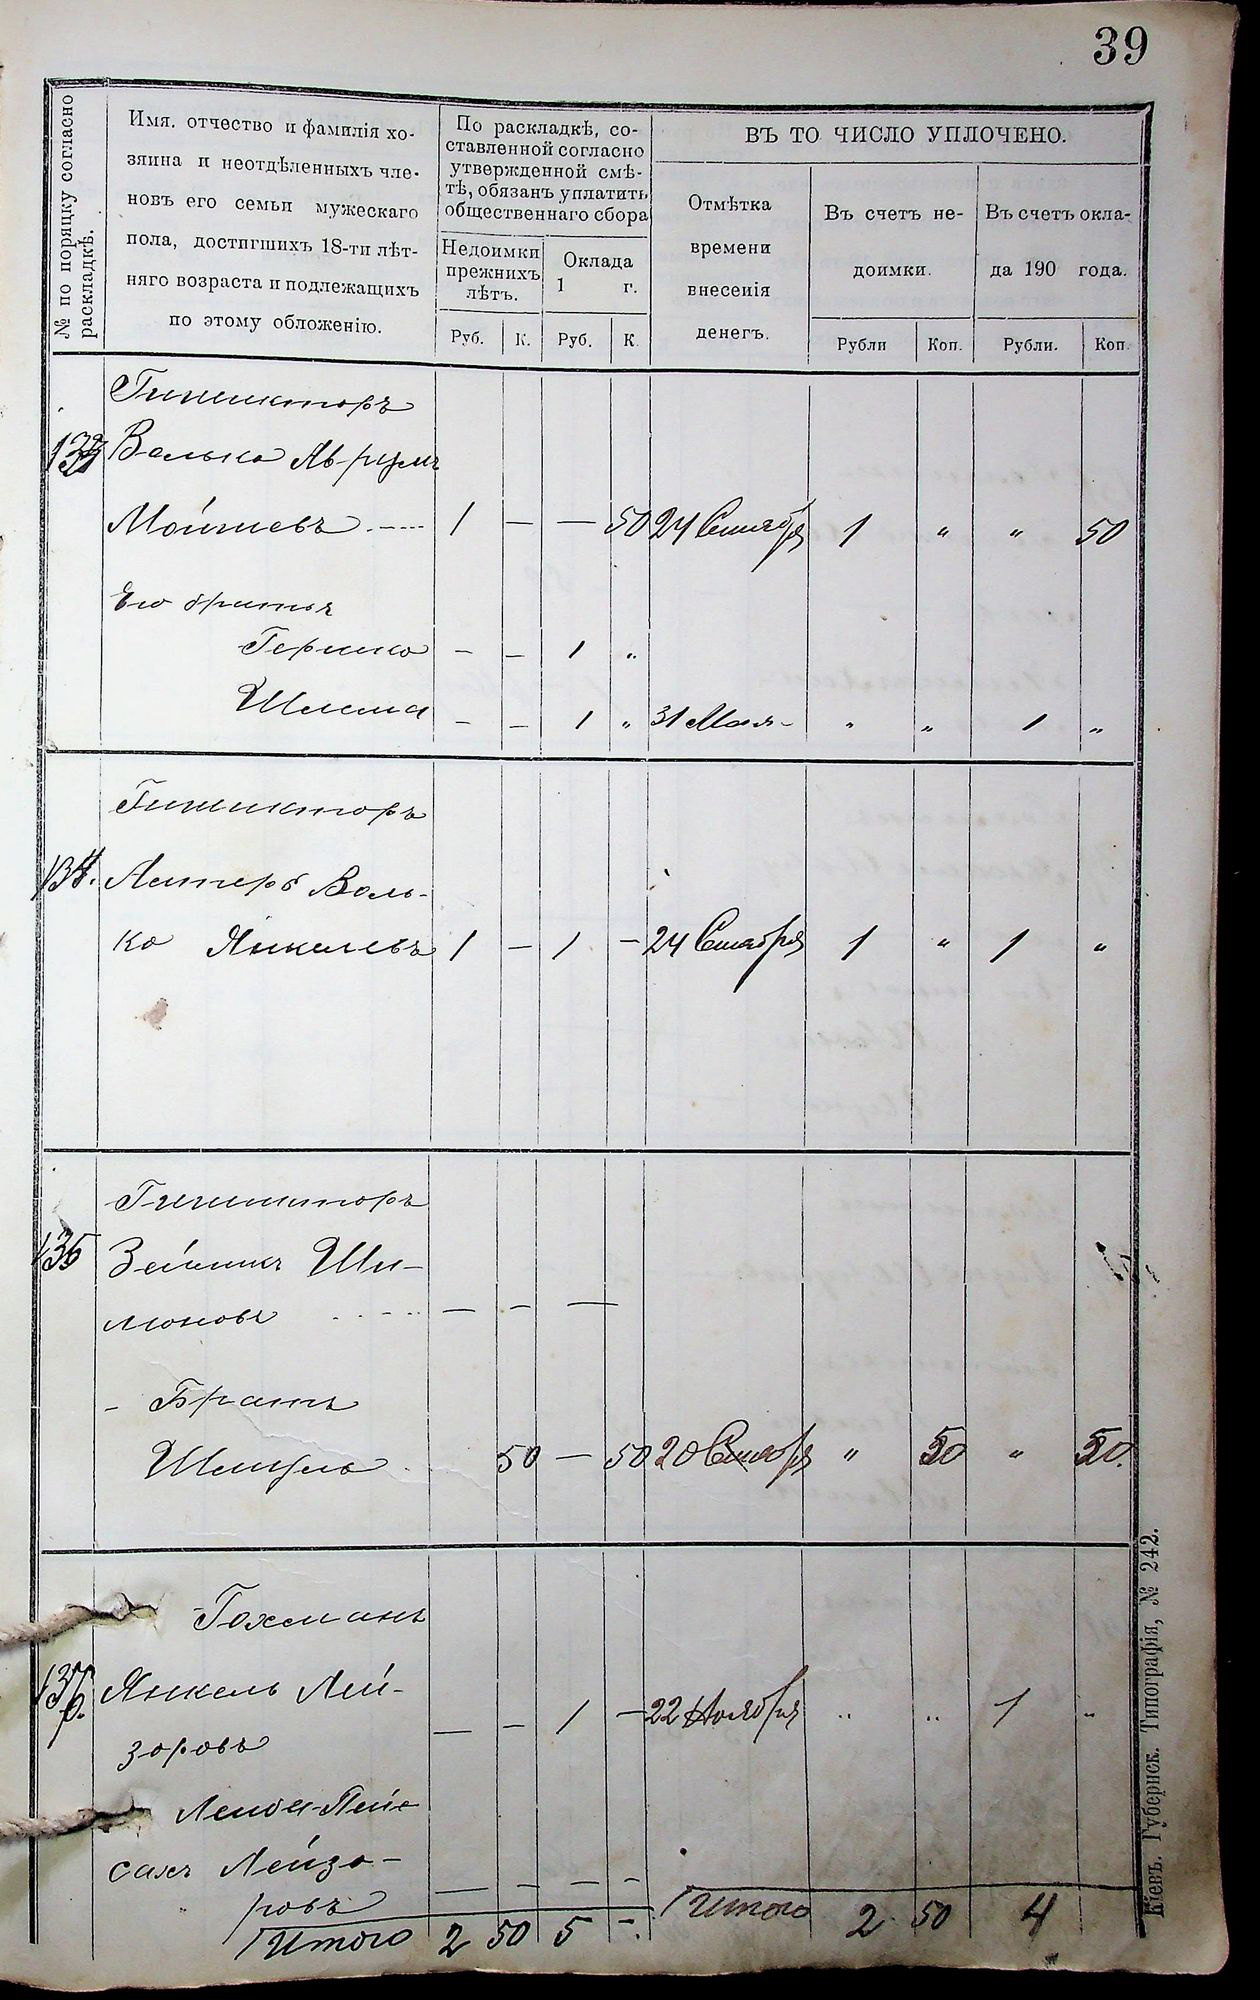 39
№ по порядку согласно
раскладкѣ.
Имя, отчество и фамилія хо-
зяина и неотдѣленныхъ чле-
новъ его семьи мужескаго
пола, достигшихъ 18-ти лѣт-
няго возраста и подлежащихъ
по этому обложенію.
По раскладкѣ, со-
ставленной согласно
утвержденной смѣ-
тѣ, обязанъ уплатить
общественнаго сбора
Недоимки
прежнихъ
лѣтъ.
Оклада
1 г.
Руб. К. Руб. К.
ВЪ ТО ЧИСЛО УПЛОЧЕНО.
Отмѣтка
времени
внесенія
денегъ.
Въ счетъ не-
доимки.
Въ счетъ окла-
да 190 года.
Рубли Коп. Рубли. Коп.
133
Волько Аврумъ
Мойшевъ 1 — — 50 24 Сентября 1 " " 50
Его братья
Гершко — — 1 "
Шлема — — 1 " 31 Мая - " " 1 "
134.
Лейперъ Воль-
ко Янкелевъ 1 — 1 — 24 Сентября 1 " 1 "
135
Зейликъ Ши-
моновъ — — —
- Братъ
Шмуль 50 — 50 20 Сентября " 50 " 50.
Гохманъ
136.
Янкель Лей-
зоровъ — — 1 — 22 Ноября " " 1 "
Лейба-Пей-
сахъ Лейзо-
ровъ — — — —
Итого 2 50 5 — Итого 2 50 4
Кіевъ. Губернск. Типографія, № 242.